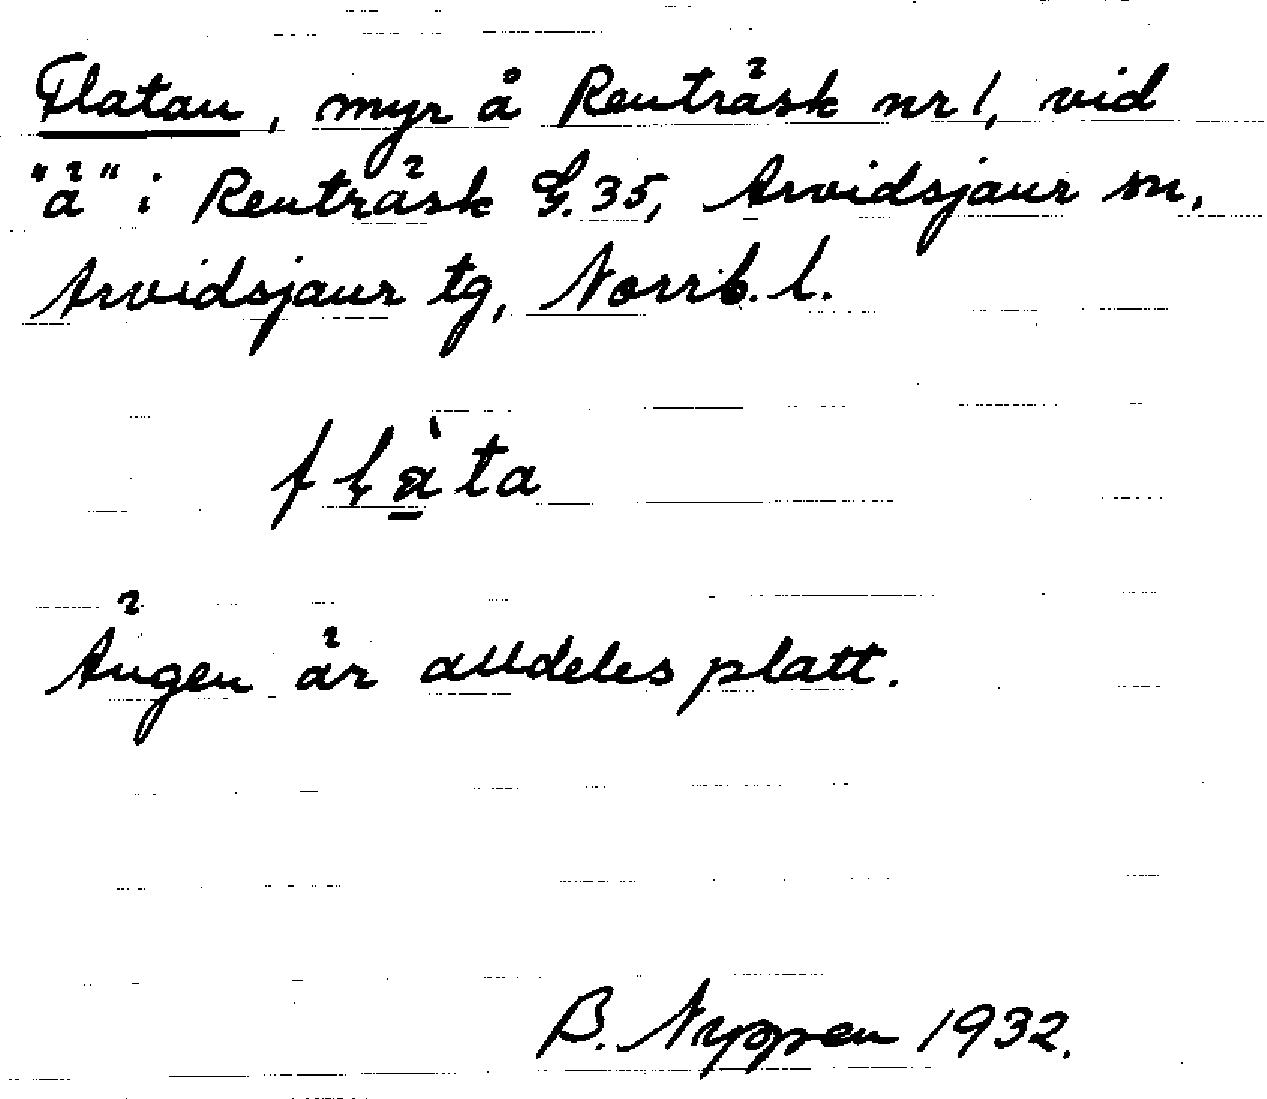 Flatan, myr å Renträsk nr 1, vid
"ä" i Renträsk G. 35, Arvidsjaur sn,
Arvidsjaur tg, Norrb. l.
fḷà̱ta
Ängen är alldeles platt.
B. Nyppen 1932.